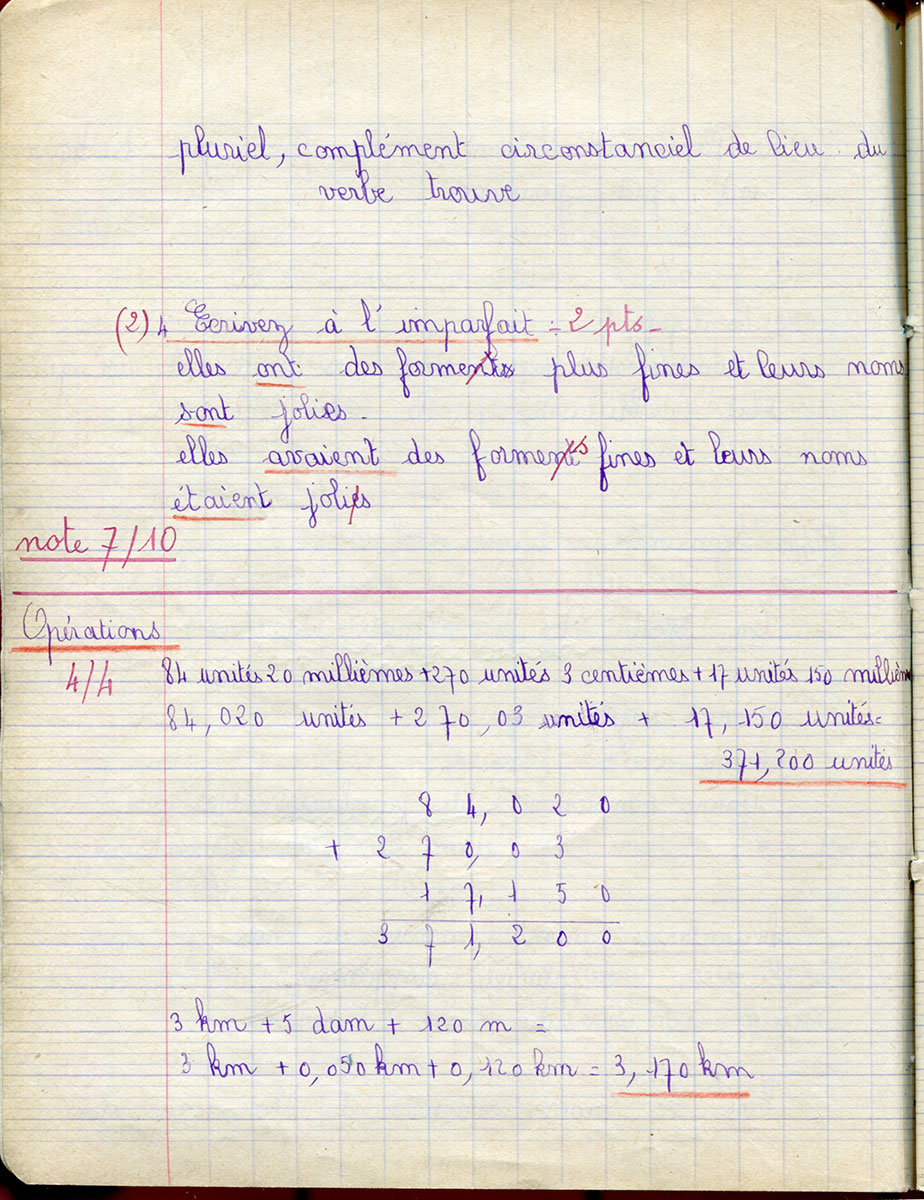 pluriel, complément circonstanciel de lieu du
verbe trouve
(2) 4 Ecrivez à l'imparfait = 2 pts -
elles ont des forments plus fines et leurs noms
sont jolies.
elles avaient des forments fines et leurs noms
étaient jolies
note 7/10
Opérations
4/4 84 unités 20 millièmes + 270 unités 3 centièmes + 17 unités 150 millièm
84,020 unités + 270,03 unités + 17,150 unités =
371,200 unités
8 4, 0 2 0
+ 2 7 0, 0 3
1 7, 1 5 0
3 7 1, 2 0 0
3 km + 5 dam + 120 m =
3 km + 0,050 km + 0,120 km = 3,170 km